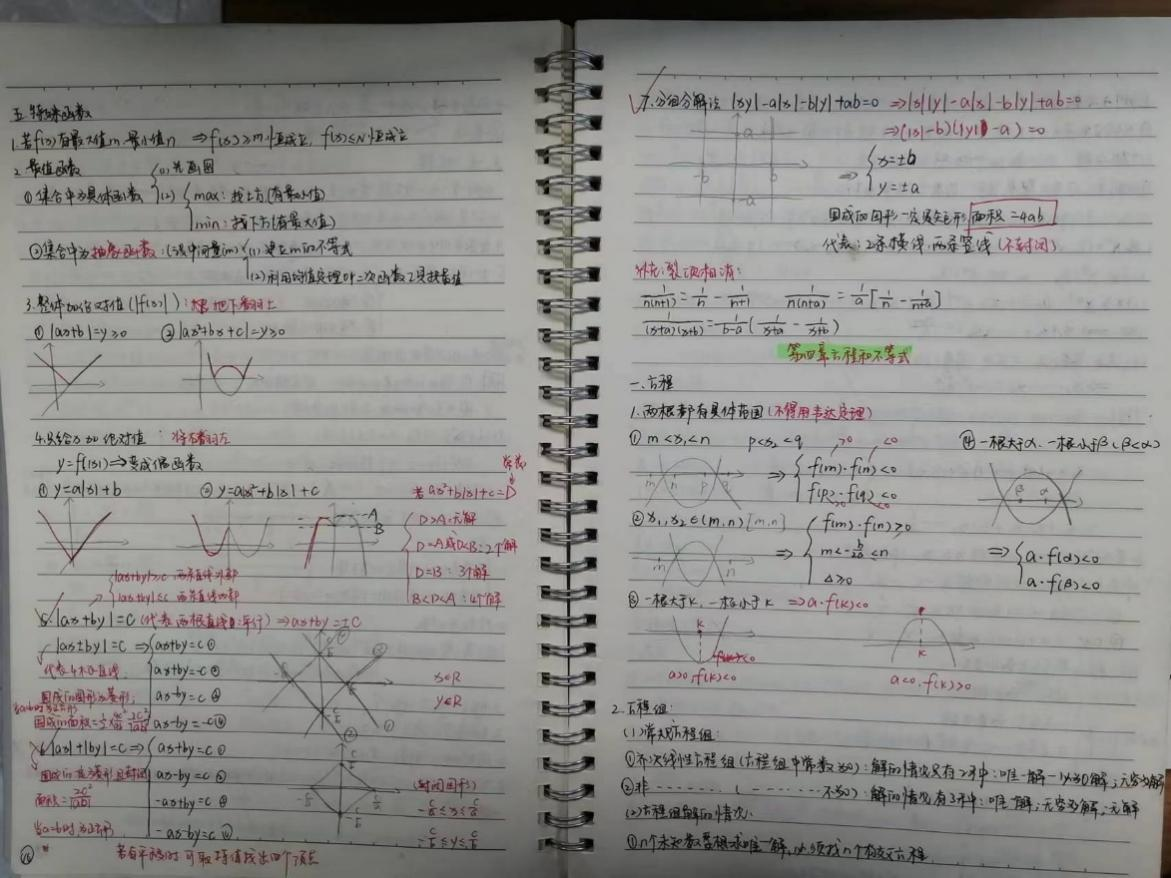 五.特殊函数
1.若f(x)有最大值m.最小值n ⇒f(x)≥m恒成立, f(x)≤N恒成立
2.最值函数
(1)先画图
①集合中为具体函数
(2) max:找上方(有最小值)
min:找下方(有最大值)
②集合中为抽象函数:(设中间量m)
(1)建立m的不等式
(2)利用均值定理.叶.二次函数工具找最值
3.整体加绝对值(|f(x)|):把下翻到上
①|ax+b|=y≥0 ②|ax²+bx+c|=y≥0
4.只给x加绝对值:将右翻到左
y=f(|x|)⇒变成偶函数
①y=a|x|+b ②y=ax²+b|x|+c
若ax²+b|x|+c=D
A
B
D>A:无解
D=A或D<B:2个解
D=B:3个解
B<D<A:4个解
|ax+by|≥c:两条直线外部
|ax+by|≤c:两条直线内部
5.|ax+by|=C(代表两根直线且平行)⇒ax+by=±C
|ax±by|=C ⇒ ax+by=c ①
代表4条直线
ax+by=-c ②
围成的图形为菱形;
ax-by=c ③
围成的面积=
ax-by=-c ④
x∈R
y∈R
6.|ax|+|by|=C ⇒ ax+by=c ①
围成的图为菱形且封闭
ax-by=c ②
面积=2c²/|ab|
-ax+by=c ③
当a=b时为正方形
-ax-by=c ④
(封闭图形)
-c/a≤x≤c/a
-c/b≤y≤c/b
若有平移时可取特值找出四个顶点
7.分组分解法 |xy|-a|x|-b|y|+ab=0 ⇒|x||y|-a|x|-b|y|+ab=0
⇒(|x|-b)(|y|-a)=0
⇒ x=±b
y=±a
a
-b b
-a
围成的图形一定是矩形,面积=4ab
代表:2条横线,两条竖线(不封闭)
补充:裂项相消:
1/n(n+1)=1/n-1/n+1 1/n(n+a)=1/a[1/n-1/n+a]
1/(x+a)(x+b)=1/b-a(1/x+a-1/x+b)
第四章方程和不等式
一.方程
1.两根都有具体范围(不得用韦达定理)
①m<x₁<n p<x₂<q >0 <0
⇒ f(m)·f(n)<0
f(p)·f(q)<0
m n p q
④一根大于α.一根小于β(β<α)
β α
⇒ a·f(α)<0
a·f(β)<0
②x₁,x₂∈(m,n)[m,n]
⇒ f(m)·f(n)≥0
m<-b/2a<n
Δ≥0
m n
③一根大于k,一根小于k ⇒a·f(k)<0
k
a>0,f(k)<0
k
a<0,f(k)>0
2.方程组:
(1)常规方程组:
①齐次线性方程组(方程组中常数为0):解的情况只有2种:唯一解一定为0解;无穷多解
②非--------(--------不为0):解的情况有3种:唯一解;无穷多解;无解
(2)方程组解的情况:
①n个未知数要想求唯一解,必须找n个独立方程